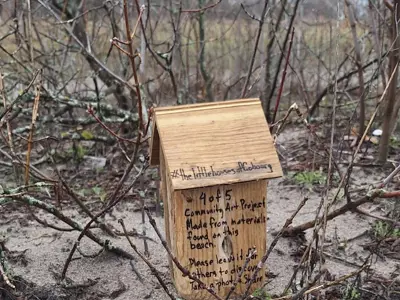 #thelittlehousesofCobourg
4 of 5
Community Art Project
Made from materials
found on this
beach
Please leave it for
others to discover
Take a photo & share